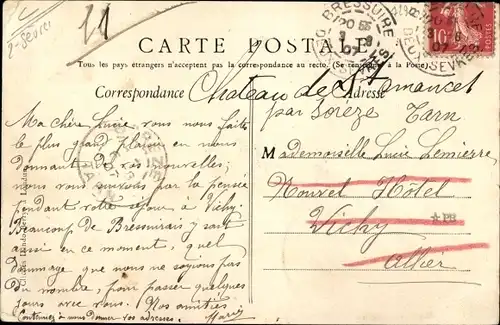 11
2-Sèvres
CARTE POSTALE
Tous les pays étrangers n'acceptent pas la correspondance au recto. (Se renseigner à la Poste).
Correspondance
Adresse
BRESSUIRE
DEUX-SEVRES
10
POSTES
Chateau de St Amancet
par Sorèze Tarn
Ma chère Lucie vous nous faites
le plus grand plaisir en nous
donnant de vos nouvelles;
nous vous suivons par la pensée
pendant votre séjour à Vichy.
Beaucoup de Bressuirais y sont
aussi en ce moment, quel
dommage que nous ne soyions pas
du nombre, pour passer quelques
jours avec vous. Nos amitiés
Continuez à nous donner vos adresses. Marie
Mademoiselle Lucie Lemierre
Nouvel Hôtel
Vichy
Allier